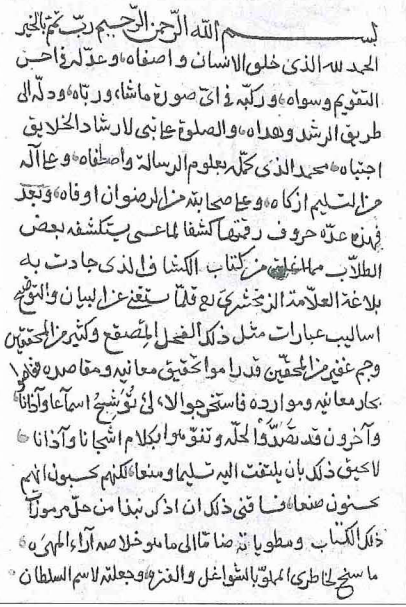 بسم الله الرحمن الرحيم رب تمم بالخير
الحمد لله الذى خلق الانسان واصفاه وعدله فى احسن
التقويم وسواه وركبه فى اى صورة ماشاء ورباه ودله الى
طريق الرشد وهداه والصلوة على نبى لارشاد الخلايق
اجتباه محمد الذى كمله بعلوم الرسالة واصطفاه وعلى آله
من التسليم ازكاه وعلى صحابته من الرضوان اوفاه وبعد
فهذه عدة حروف رقمتها كشفا لما عسى يستكشفه بعض
الطلاب من كتاب الكشاف الذى جادت به
بلاغة العلامة الزمخشرى قلما يستغنى عن البيان والتوضيح
اساليب عبارات مثل ذلك الفحل المصقع وكثير من المحققين
وجم غفير من المحقين قد راموا تحقيق معانيه ومقاصده
بحار معانيه وموارده فاستخرجوا لآلئ توشح اسماعا وآذانا
وآخرون قد تصدوا لحله وتفوهوا بكلام اشجانا وآذانا
لا يحق ذلك بان يلتفت اليه تسليما ومنعا لكنهم يحسبون انهم
يحسنون صنعا فساقنى ذلك ان اذكر نبذا من حل مرموزات
ذلك الكتاب ومطوياته ضاما الى ما هو خلاصه آراء المهره
ما سنح لخاطرى المملو بالشواغل والفترة وجعلته لاسم السلطان